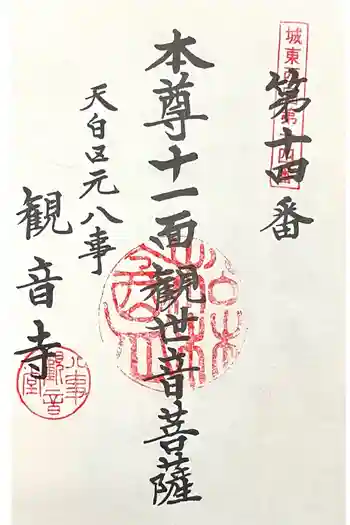 第十四番
本尊十一面観世音菩薩
天白区元八事
観音寺
八事観音堂